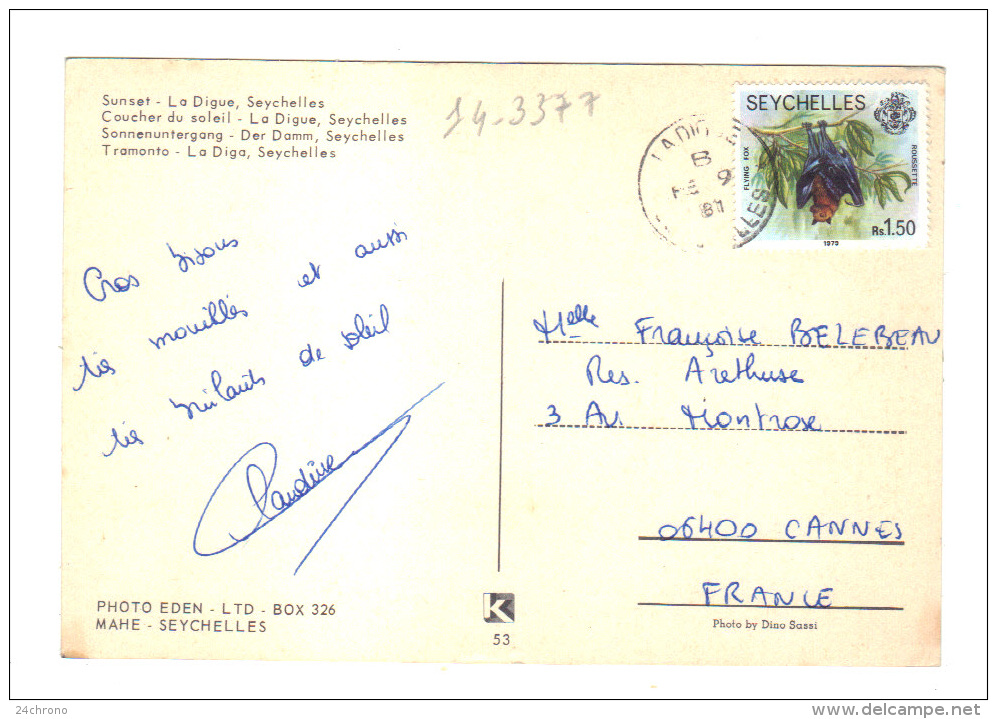 Sunset - La Digue, Seychelles
Coucher du soleil - La Digue, Seychelles
Sonnenuntergang - Der Damm, Seychelles
Tramonto - La Diga, Seychelles
14-3377
LA DIG
B
FE 9
81
ELLES
SEYCHELLES
FLYING FOX
ROUSSETTE
Rs.1.50
1979
Gros bisous
tès mouillés et aussi
tès brûlants de soleil
Claudine
Melle Françoise BELEBEAU
Res. Arethuse
3 Av. Montrose
06400 CANNES
FRANCE
PHOTO EDEN - LTD - BOX 326
MAHE - SEYCHELLES
K
53
Photo by Dino Sassi
24chrono
delcampe.net